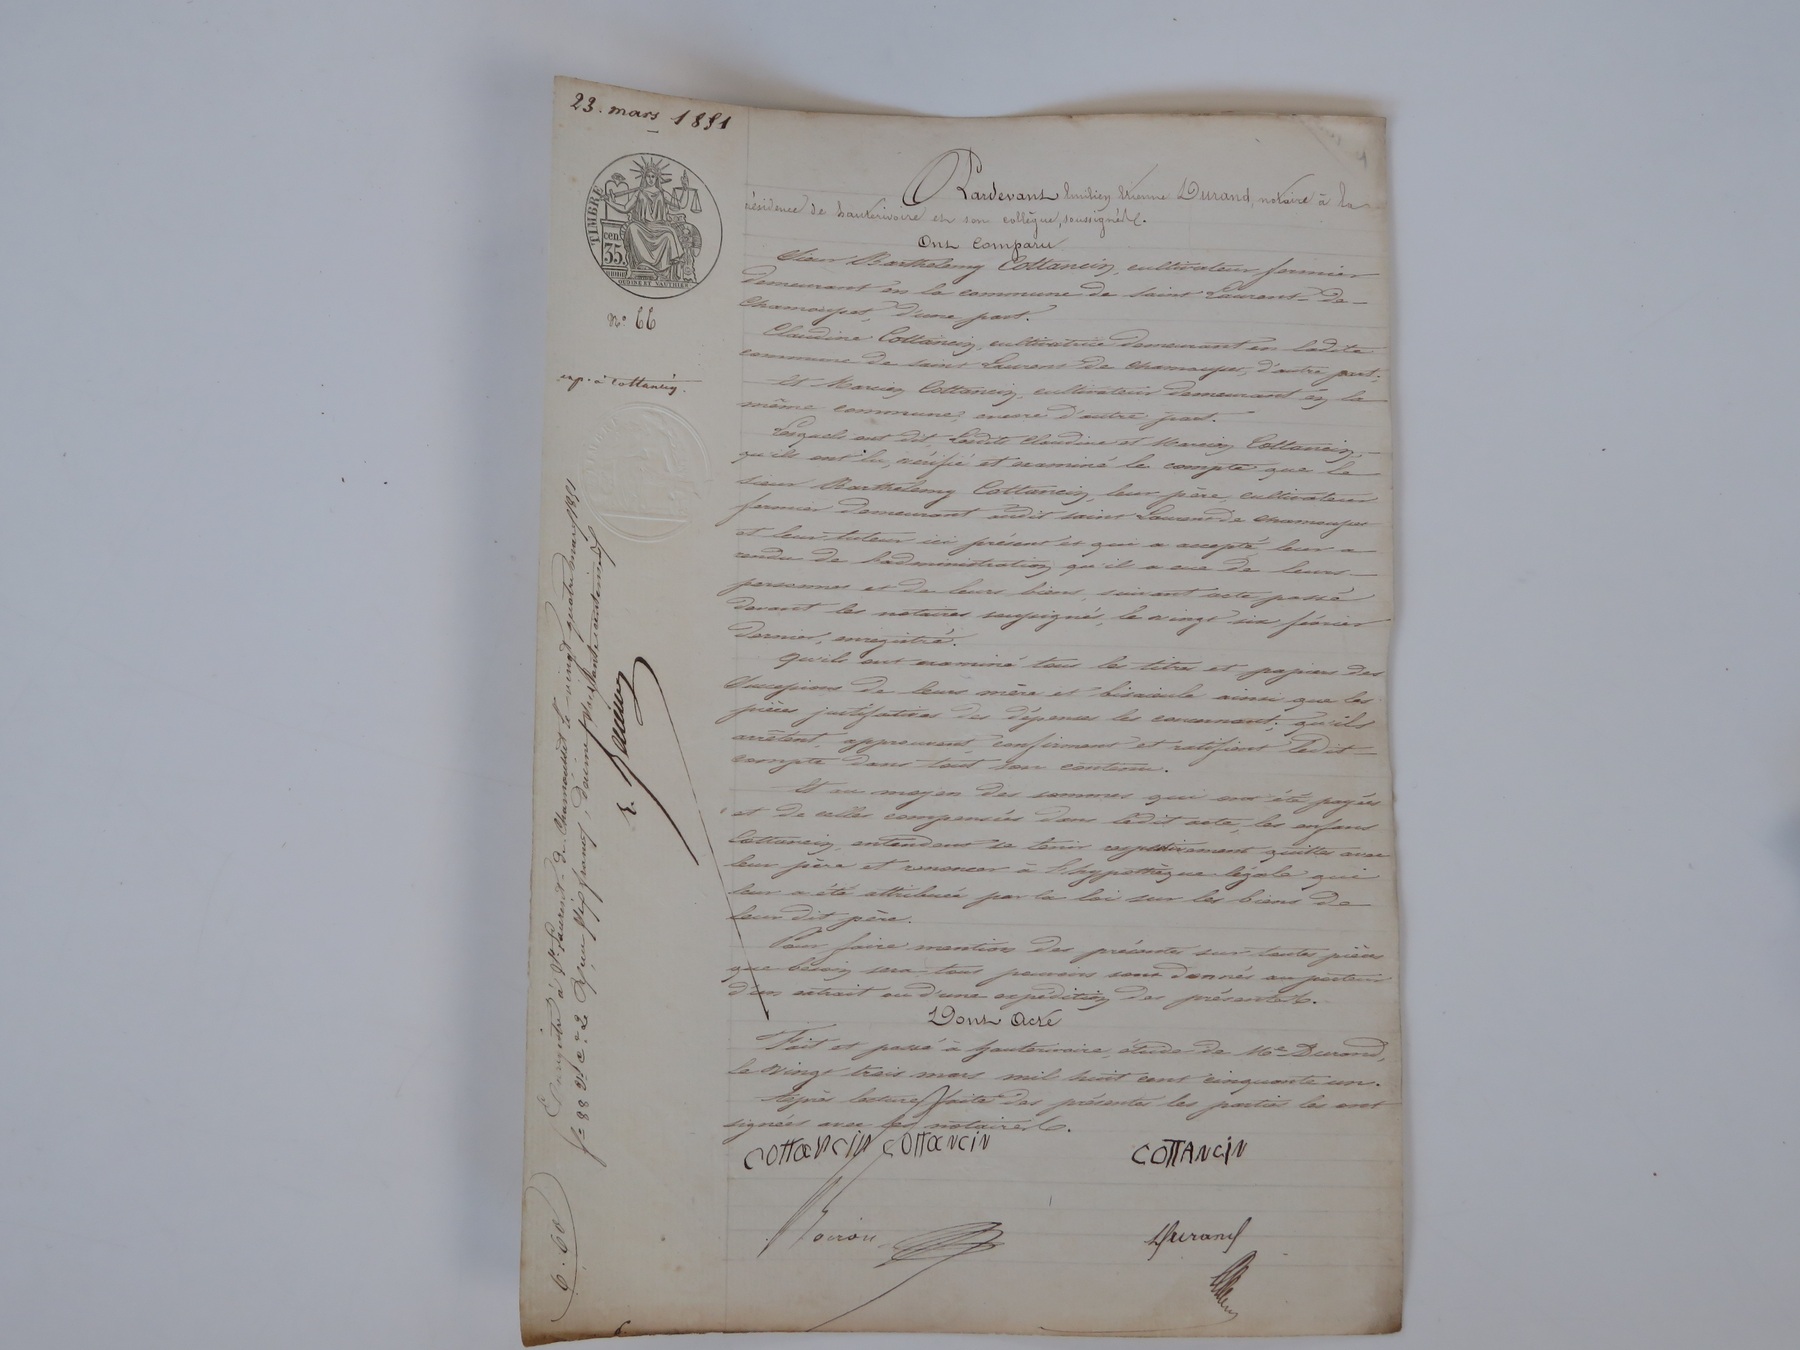 23. mars 1851
TIMBRE
cent
35.
OUDINÉ ET VAUTHIER
N° 66
exp. à Cottancin.
Pardevant Emilien Etienne Durand, notaire à la
résidence de hauterivoire et son collègue, soussignés.
Ont Comparu
Sieur Barthelemy Cottancin, cultivateur fermier
demeurant en la commune de saint Laurent-de-
Chamousset, d'une part.
Claudine Cottancin, cultivatrice demeurant en ladite
commune de saint Laurent de Chamousset, d'autre part;
Et Marcien Cottancin, cultivateur demeurant en la
même commune, encore d'autre part.
Lesquels ont dit, lesdits Claudine et Marcien Cottancin,
qu'ils ont lu, vérifié et examiné le compte que le
sieur Barthelemy Cottancin, leur père, cultivateur
fermier demeurant audit saint Laurent de Chamousset
et leur tuteur ici présent et qui a accepté, leur a
rendu de l'administration qu'il a eue de leurs
personnes et de leurs biens, suivant acte passé
devant les notaires soussignés, le vingt six février
dernier, enregistré.
Qu'ils ont examiné tous les titres et papiers des
successions de leurs mère et bisaïeule ainsi que les
pièces justificatives des dépenses les concernant; qu'ils
arrêtent, approuvent, confirment et ratifient ledit
compte dans tout son contenu.
Et au moyen des sommes qui ont été payées
et de celles compensées dans ledit acte, les enfans
Cottancin, entendent se tenir respectivement quittes avec
leur père et renoncer à l'hypothèque légale qui
leur a été attribuée par la loi sur les biens de
leur dit père.
Pour faire mention des présentes sur toutes pièces
que besoin sera tous pouvoirs sont donnés au porteur
d'un extrait ou d'une expédition des présentes.
Dont Acte
Fait et passé à hauterivoire, étude de Me Durand,
le vingt trois mars mil huit cent cinquante un.
Après lecture faite des présentes les parties les ont
signées avec les notaires.
COTTANCIN COTTANCIN COTTANCIN
Durand
Enregistré à St Laurent-de-Chamousset le vingt quatre mars 1851
fo 88 Vo C 2
6.60